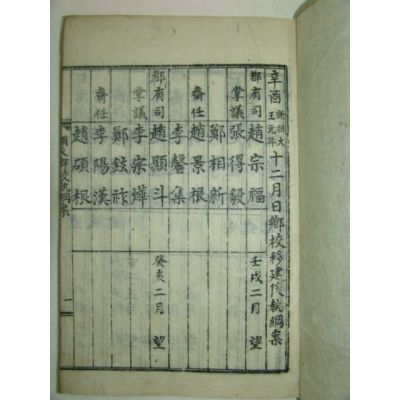 辛酉 純祖大王元年 十二月日鄕校移建後執綱案
都有司 趙宗福 壬戌二月 望
掌議 張得毅
鄭相新
齋任 趙景根
李馨集
都有司 趙顯斗 癸亥二月 望
掌議 李宗燁
鄭鉉祚
齋任 李陽漢
趙碩根
順天鄕校執綱案 一